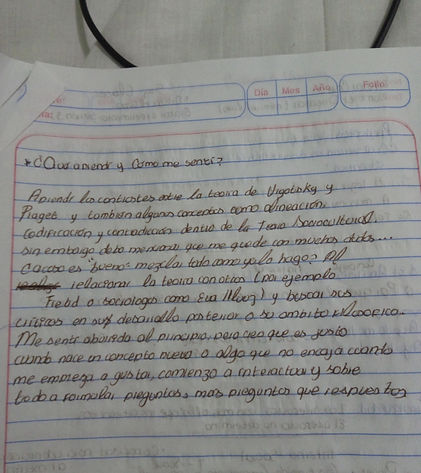 Día Mes Año Folio
* ¿Que aprendi y Como me senti?
Aprendi los contrastes entre la teoria de Vigotsky y
Piaget y tambien algunos conceptos como alineación,
Codificación y contradicción dentro de la Teoria Sociocultural.
Sin embargo debo mencionar que me quede con muchas dudas...
Acaso es "bueno" mezclar todo como yo lo hago? Al
relacionar la teoria con otros (por ejemplo
Freud o sociologos como Eva Illouz) y buscar sus
criticas en su desarrollo posterior o su ambito filosofico.
Me senti aburrida al principio, pero creo que es justo
cuando nace un concepto nuevo o algo que no encaja cuando
me empieza a gustar, comienzo a interactuar y sobre
todo a formular preguntas, más preguntas que respuestas